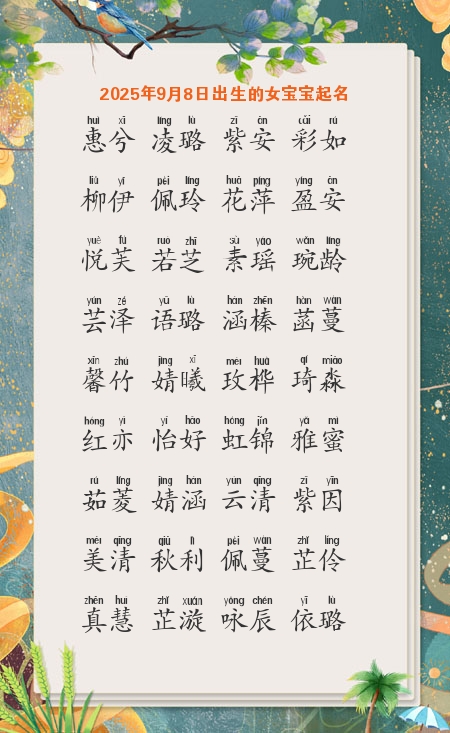 2025年9月8日出生的女宝宝起名
huì xī líng lù zǐ ān cǎi rú
惠兮 凌璐 紫安 彩如
liǔ yī pèi líng huā píng yíng ān
柳伊 佩玲 花萍 盈安
yuè fú ruò zhī sù yáo wǎn líng
悦芙 若芝 素瑶 琬龄
yún zé yǔ lù hán zhēn hàn wàn
芸泽 语璐 涵榛 菡蔓
xīn zhú jìng xī méi huà qí miǎo
馨竹 婧曦 玫桦 琦淼
hóng yì yí hǎo hóng jǐn yǎ mì
红亦 怡好 虹锦 雅蜜
rú líng jìng hán yún qīng zǐ yīn
茹菱 婧涵 云清 紫因
měi qīng qiū lì pèi wàn zhǐ líng
美清 秋利 佩蔓 芷伶
zhēn huì zhǐ xuán yǒng chén yī lù
真慧 芷漩 咏辰 依璐